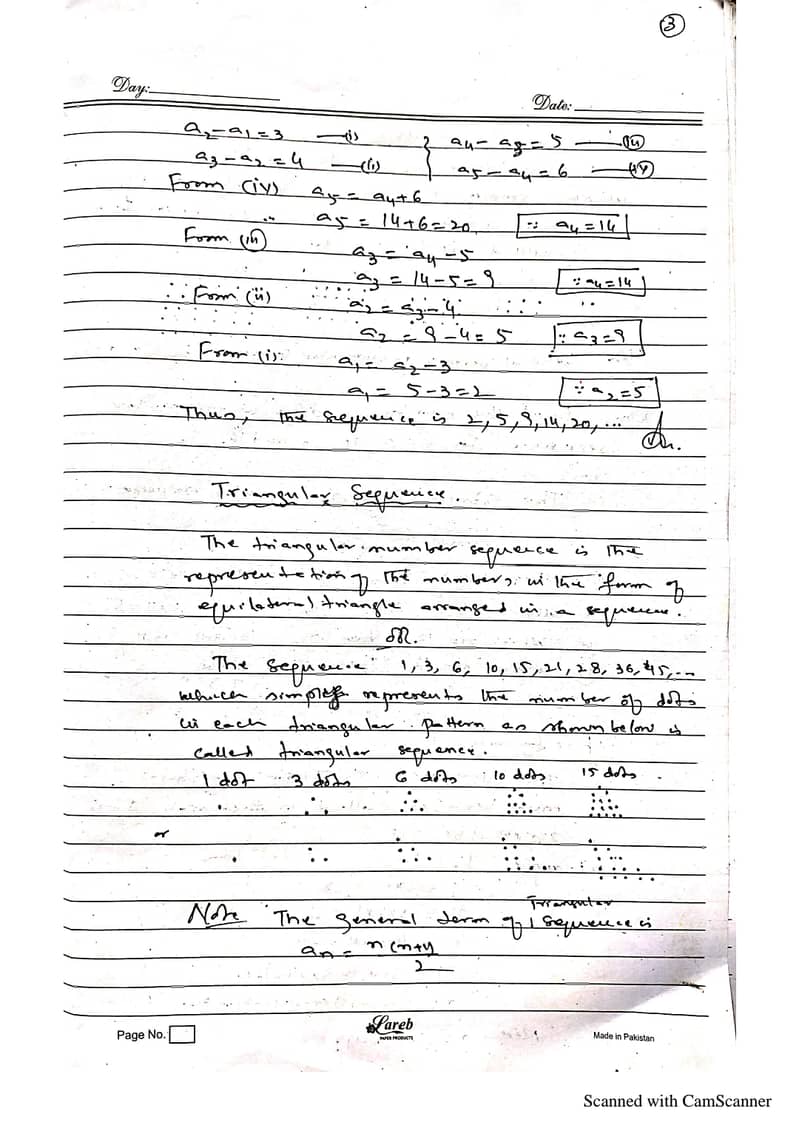 3
Day:
Date:
a2 - a1 = 3 —(i) } a4 - a3 = 5 —(iii)
a3 - a2 = 4 —(ii) } a5 - a4 = 6 —(iv)
From (iv) a5 = a4 + 6
∴ a5 = 14 + 6 = 20 ∵ a4 = 14
From (iii)
a3 = a4 - 5
a3 = 14 - 5 = 9 ∵ a4 = 14
From (ii)
a2 = a3 - 4
a2 = 9 - 4 = 5 ∵ a3 = 9
From (i)
a1 = a2 - 3
a1 = 5 - 3 = 2 ∵ a2 = 5
Thus, the sequence is 2, 5, 9, 14, 20, ... An.
Triangular Sequence.
The triangular number sequence is the
representation of the numbers in the form of
equilateral triangle arranged in a sequence.
OR.
The sequence 1, 3, 6, 10, 15, 21, 28, 36, 45, ...
which simply represents the number of dots
in each triangular pattern as shown below is
called triangular sequence.
1 dot 3 dots 6 dots 10 dots 15 dots.
or
Note The general term of Triangular sequence is
an = n(n+1)
2
Page No.
Lareb
PAPER PRODUCTS
Made in Pakistan
Scanned with CamScanner